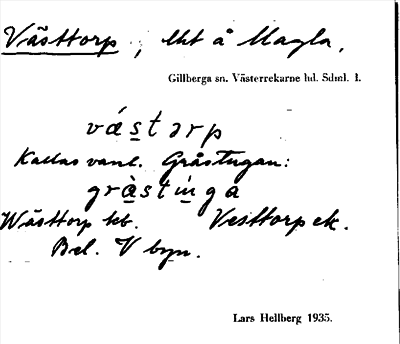 Västtorp, lht å Magla.
Gillberga sn. Västerrekarne hd. Sdml. 1.
vást ərp
Kallas vanl. Gråstugan:
gràstìnga
Wästtorp kb. Vesttorp ek.
Bel. V byn.
Lars Hellberg 1935.